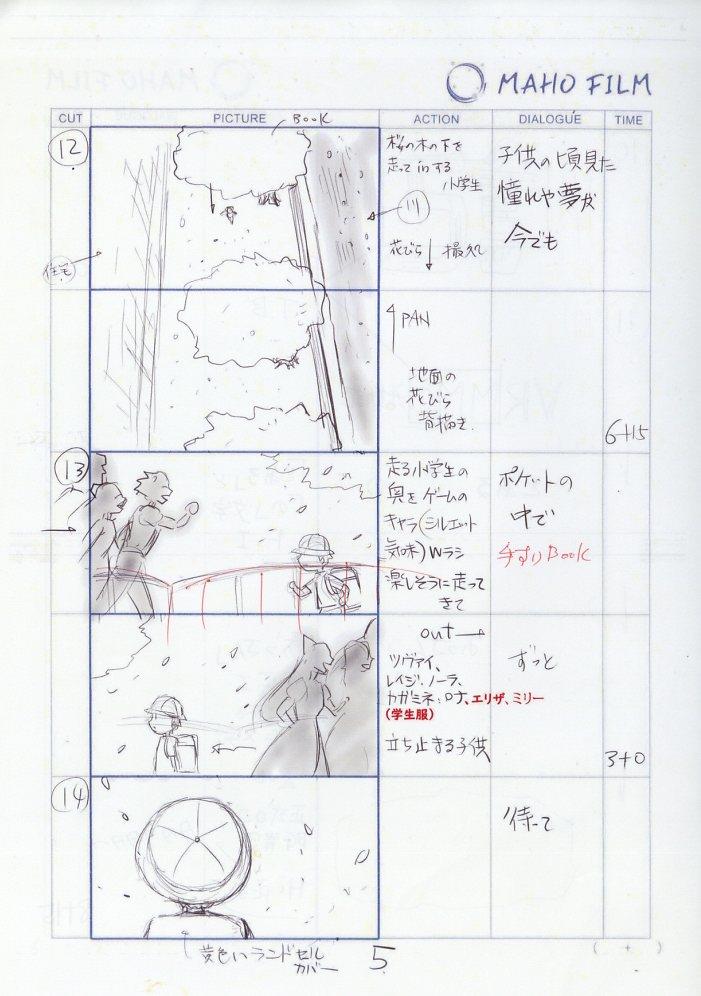 MAHO FILM
CUT PICTURE ACTION DIALOGUE TIME
BOOK
12
桜の木の下を
走ってinする
小学生
子供の頃見た
憧れや夢が
今でも
川
住宅
花びら↓ 撮処理
PAN
地面の
花びら
背描き
6+15
13
走る小学生の
奥をゲームの
キャラ(シルエット
気味)Wラシ
楽しそうに走って
きて
ポケットの
中で
手すりBOOK
out→
ツヴァイ、
レイジ、ノーラ、
カガミネ、ロナ、エリザ、ミリー
(学生服)
立ち止まる子供
ずっと
3+0
14
待って
黄色いランドセル
カバー
5
( + )